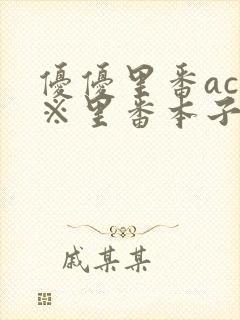 優優里番ac
※里番本子
戚某某